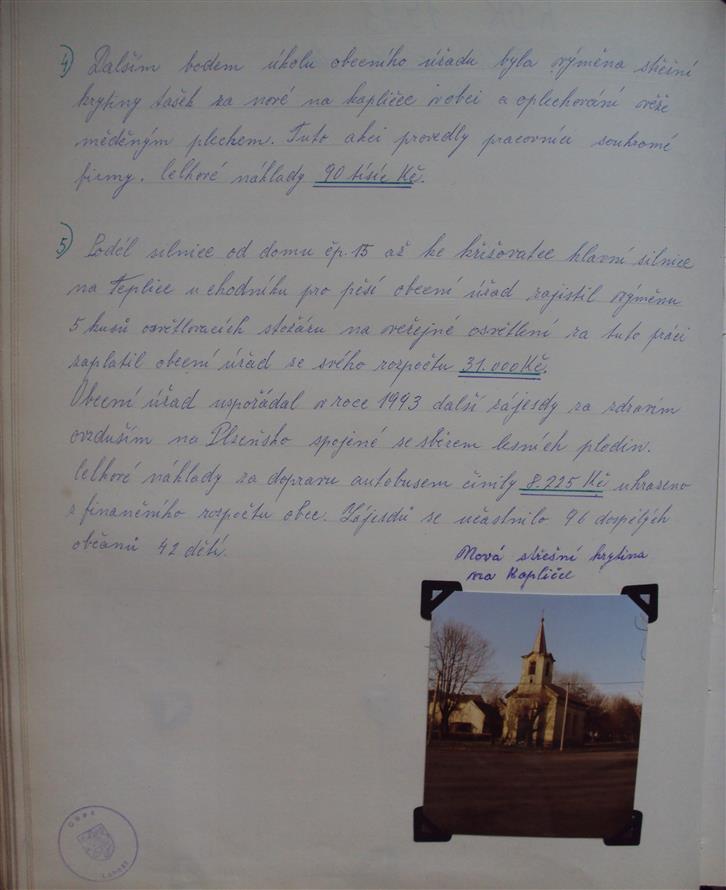 4) Dalším bodem úkolu obecního úřadu byla výměna střešní
krytiny tašek za nové na kapličce v obci a oplechování věže
měděným plechem. Tuto akci provedly pracovníci soukromé
firmy. Celkové náklady 90 tisíc Kč.
5) Podél silnice od domu čp. 15 až ke křižovatce hlavní silnice
na Teplice u chodníku pro pěší obecní úřad zajistil výměnu
5 kusů osvětlovacích stožárů na veřejné osvětlení za tuto práci
zaplatil obecní úřad se svého rozpočtu 31.000 Kč.
Obecní úřad uspořádal v roce 1993 další zájezdy za zdravím
ovzduším na Plzeňsko spojené se sběrem lesních plodin.
Celkové náklady za dopravu autobusem činily 8.225 Kč uhrazeno
z finančního rozpočtu obce. Zájezdů se učastnilo 96 dospělých
občanů 42 dětí.
Nová střešní krytina
na Kapličce